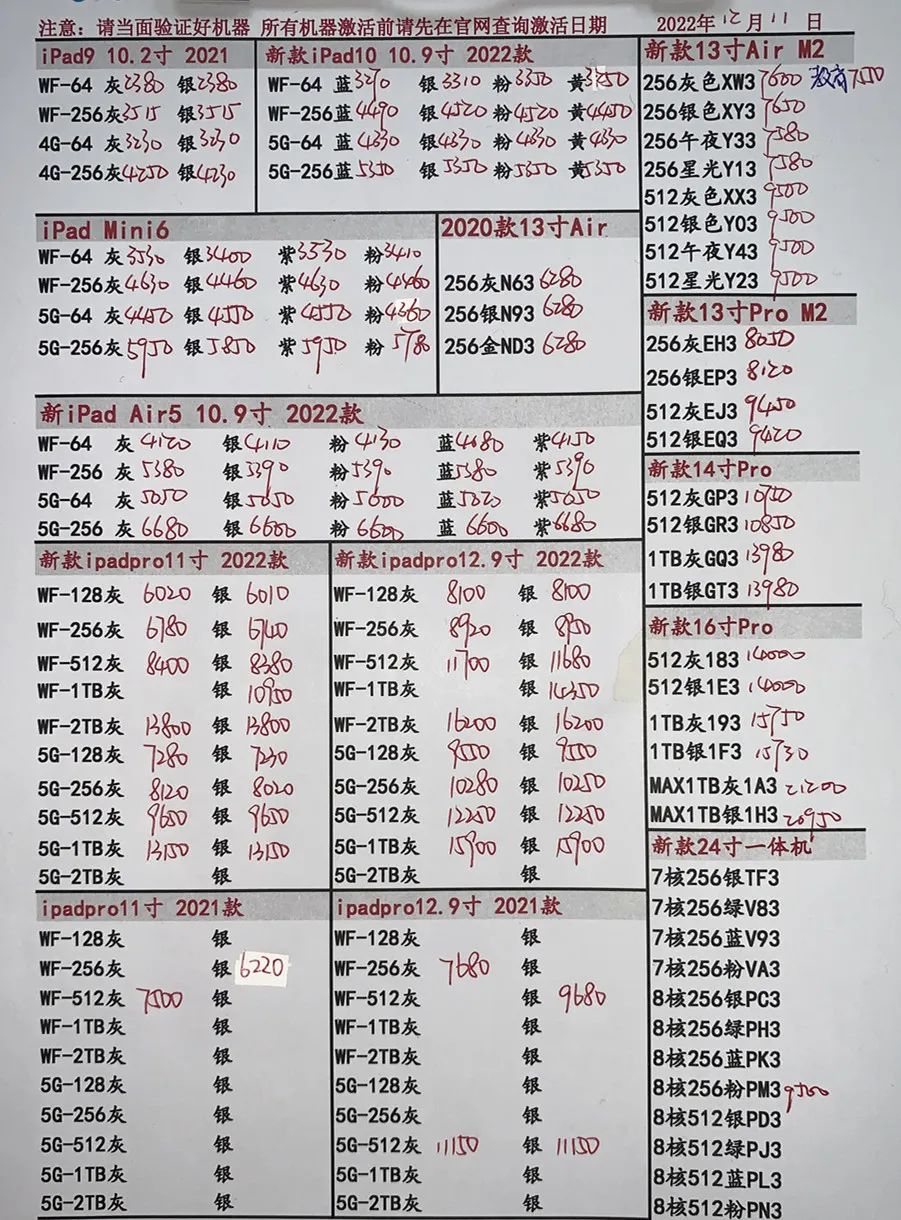 注意：请当面验证好机器 所有机器激活前请先在官网查询激活日期 2022年 12 月 11 日
iPad9 10.2寸 2021
WF-64 灰2380 银2380
WF-256灰3515 银3515
4G-64 灰3230 银3230
4G-256灰4250 银4230
新款iPad10 10.9寸 2022款
WF-64 蓝3290 银3310 粉3350 黄3250
WF-256蓝4490 银4520 粉4520 黄4450
5G-64 蓝4330 银4370 粉4330 黄4370
5G-256蓝5350 银5350 粉5350 黄5350
iPad Mini6
WF-64 灰3530 银3400 紫3530 粉3410
WF-256灰4630 银4460 紫4630 粉4460
5G-64 灰4450 银4550 紫4550 粉4360
5G-256灰5950 银5850 紫5950 粉5780
2020款13寸Air
256灰N63 6280
256银N93 6280
256金ND3 6280
新iPad Air5 10.9寸 2022款
WF-64 灰4120 银4110 粉4130 蓝4080 紫4150
WF-256 灰5380 银5390 粉5390 蓝5380 紫5390
5G-64 灰5050 银5050 粉5000 蓝5020 紫5050
5G-256 灰6680 银6600 粉6600 蓝6600 紫6680
新款ipadpro11寸 2022款
WF-128灰 6020 银 6010
WF-256灰 6780 银 6740
WF-512灰 8400 银 8380
WF-1TB灰 银 10950
WF-2TB灰 13800 银 13800
5G-128灰 7280 银 7230
5G-256灰 8120 银 8020
5G-512灰 9650 银 9650
5G-1TB灰 13150 银 13150
5G-2TB灰 银
新款ipadpro12.9寸 2022款
WF-128灰 8100 银 8100
WF-256灰 8920 银 8950
WF-512灰 11700 银 11680
WF-1TB灰 银 14350
WF-2TB灰 16200 银 16200
5G-128灰 9550 银 9550
5G-256灰 10280 银 10250
5G-512灰 12250 银 12250
5G-1TB灰 15900 银 15900
5G-2TB灰 银
ipadpro11寸 2021款
WF-128灰 银
WF-256灰 银 6220
WF-512灰 7500 银
WF-1TB灰 银
WF-2TB灰 银
5G-128灰 银
5G-256灰 银
5G-512灰 银
5G-1TB灰 银
5G-2TB灰 银
ipadpro12.9寸 2021款
WF-128灰 银
WF-256灰 7680 银
WF-512灰 银 9680
WF-1TB灰 银
WF-2TB灰 银
5G-128灰 银
5G-256灰 银
5G-512灰 11150 银 11150
5G-1TB灰 银
5G-2TB灰 银
新款13寸Air M2
256灰色XW3 7600 教育7550
256银色XY3 7650
256午夜Y33 7580
256星光Y13 7580
512灰色XX3 9500
512银色Y03 9500
512午夜Y43 9500
512星光Y23 9500
新款13寸Pro M2
256灰EH3 8050
256银EP3 8120
512灰EJ3 9450
512银EQ3 9420
新款14寸Pro
512灰GP3
512银GR3 10850
1TB灰GQ3 13980
1TB银GT3 13980
新款16寸Pro
512灰183 14000
512银1E3 14000
1TB灰193 15750
1TB银1F3 15730
MAX1TB灰1A3 21200
MAX1TB银1H3 20950
新款24寸一体机
7核256银TF3
7核256绿V83
7核256蓝V93
7核256粉VA3
8核256银PC3
8核256绿PH3
8核256蓝PK3
8核256粉PM3 9500
8核512银PD3
8核512绿PJ3
8核512蓝PL3
8核512粉PN3